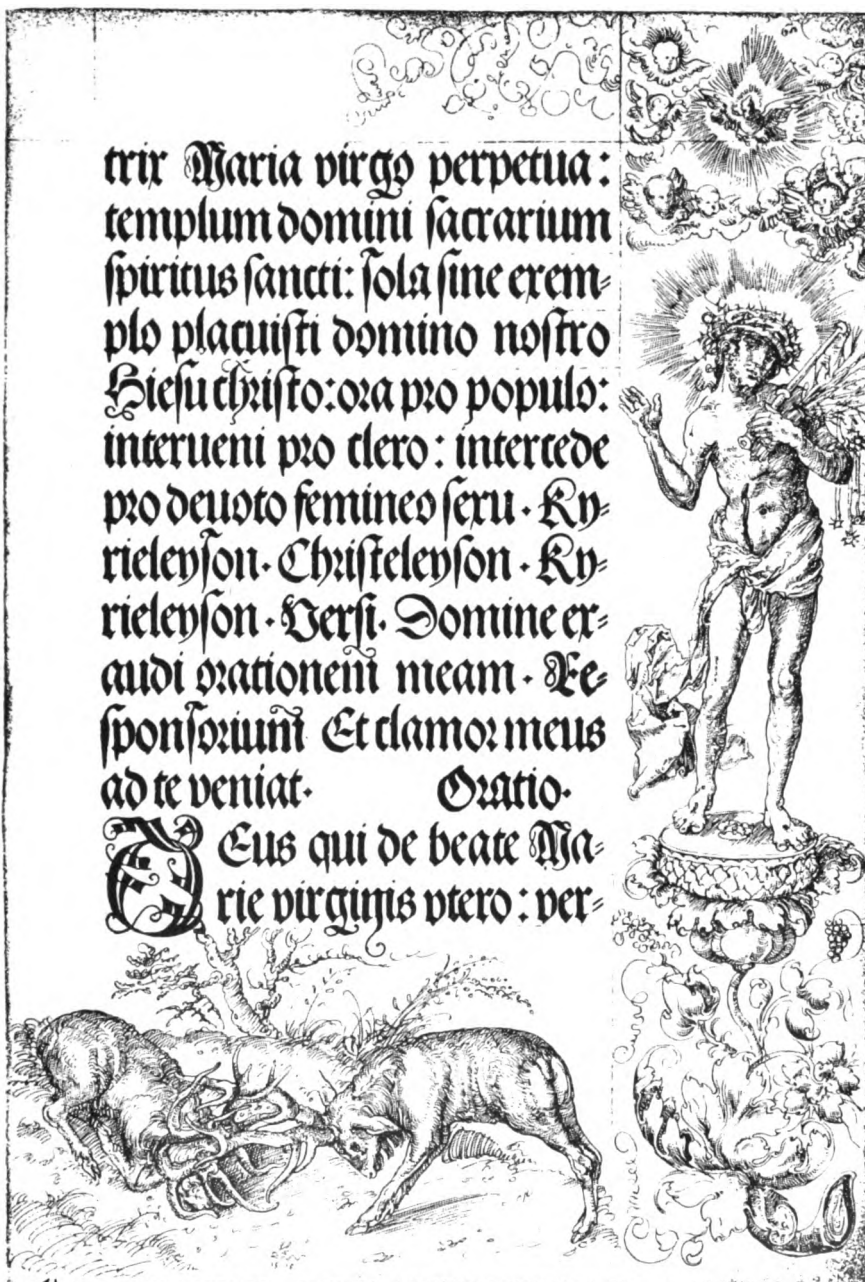 trix Maria virgo perpetua:
templum domini sacrarium
spiritus sancti: sola sine exem⸗
plo placuisti domino nostro
Hiesu christo: ora pro populo:
interueni pro clero: intercede
pro deuoto femineo sexu. Ky⸗
rieleyson. Christeleyson. Ky⸗
rieleyson. Versi. Domine ex⸗
audi orationem meam. Re⸗
sponsorium Et clamor meus
ad te veniat. Oratio.
DEus qui de beate Ma⸗
rie virginis vtero: ver⸗